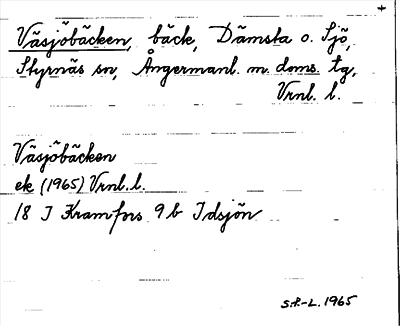 Väsjöbäcken, bäck, Dämsta o. Sjö,
Styrnäs sn, Ångermanl. m. doms. tg,
Vrnl. l.
Väsjöbäcken
ek (1965) Vrnl. l.
18 I Kramfors 9 b Idsjön
S.P.-L. 1965